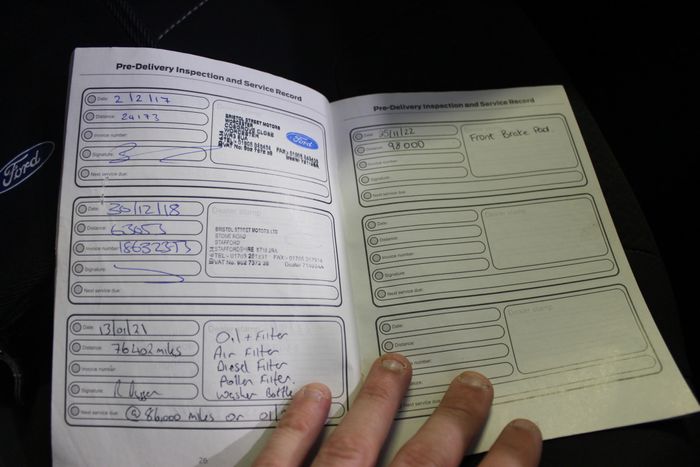 Ford
Pre-Delivery Inspection and Service Record
Date: 2/12/17
Distance: 24173
Invoice number:
Signature:
Next service due:
BRISTOL STREET MOTORS
WORCESTER
WORCESTER
Ford
Date: 30/12/18
Distance: 63053
Invoice number:
Signature:
Next service due:
Dealer stamp
BRISTOL STREET MOTORS LTD
STONE ROAD
STAFFORD
STAFFORDSHIRE
Date: 13/01/21
Distance: 76402 miles
Invoice number:
Signature:
Next service due: @ 86,000 miles or
Oil + Filter
Air Filter
Diesel Filter
Pollen Filter.
Washer Bottle
26
Pre-Delivery Inspection and Service Record
Date:
Distance: 98.000
Invoice number:
Signature:
Next service due:
Front Brake Pad.
Date:
Distance:
Invoice number:
Signature:
Next service due:
Dealer stamp
Date:
Distance:
number:
Dealer stamp